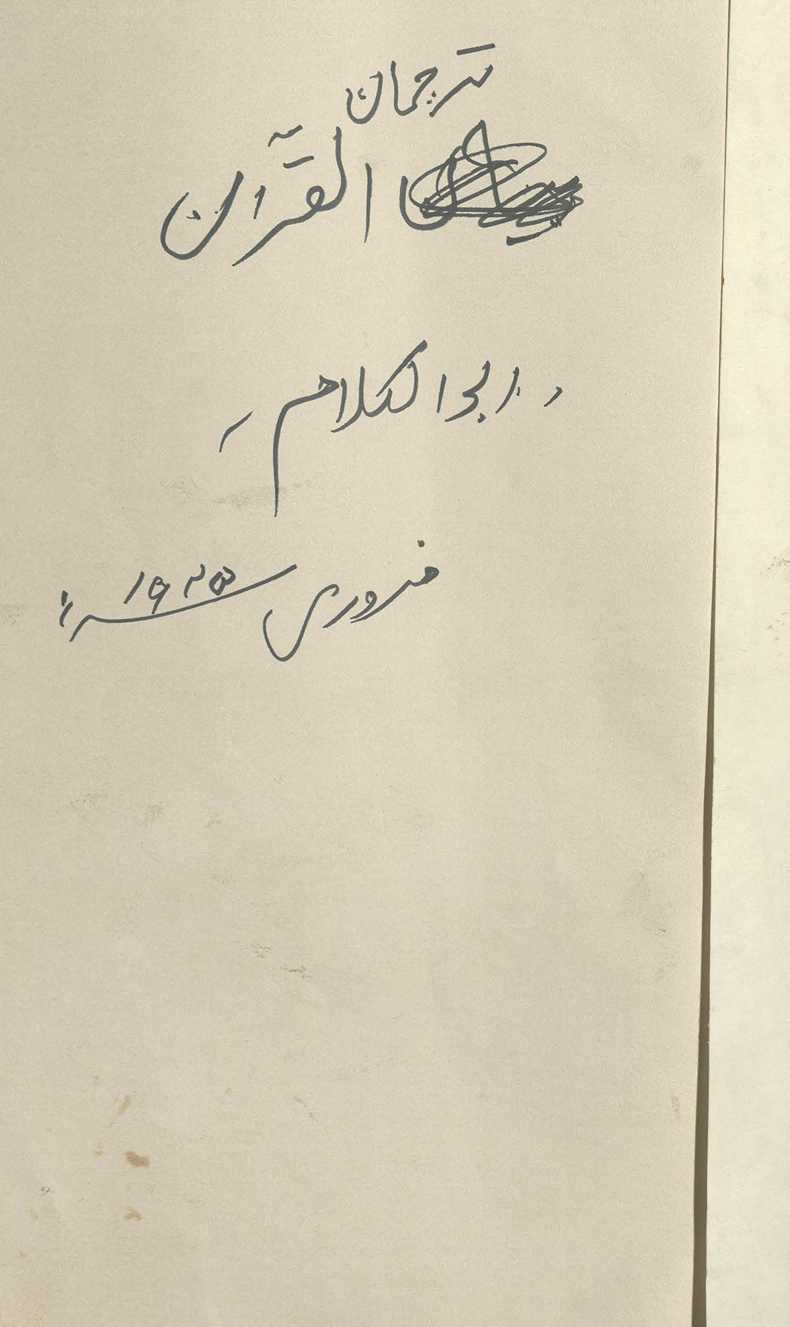 ترجمان
القرآن
، ابوالکلام ۔
فروری ۱۹۲۵ء